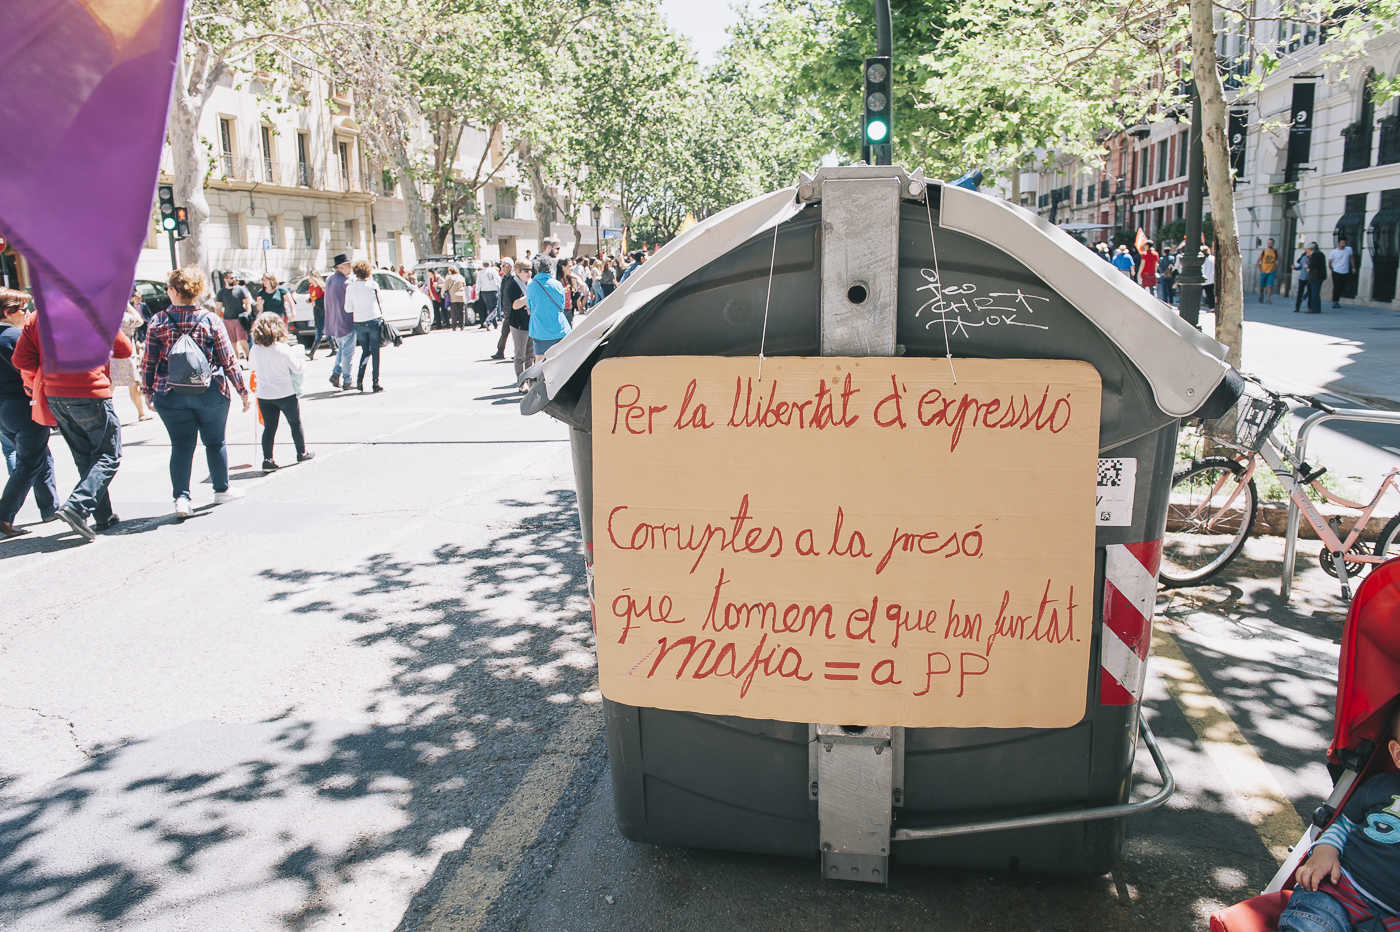 Per la llibertat d'expressió
Corruptes a la presó.
que tornen el que han furtat.
Mafia = a PP